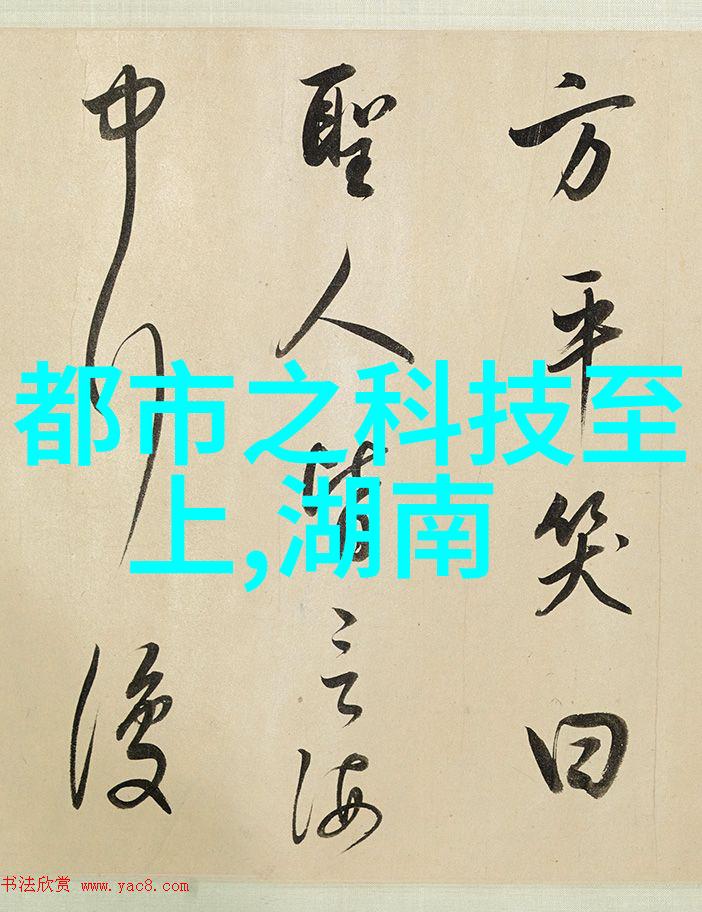 方平笑曰
聖人皆言海
中行復
都市之科技至
上,湖南
书法欣赏 www.yac8.com